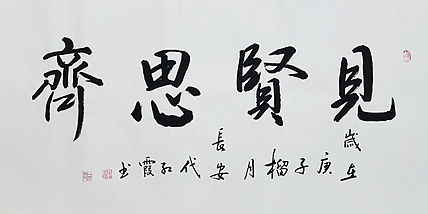 見賢思齊
歲在
庚子榴月
長安
代紅霞书